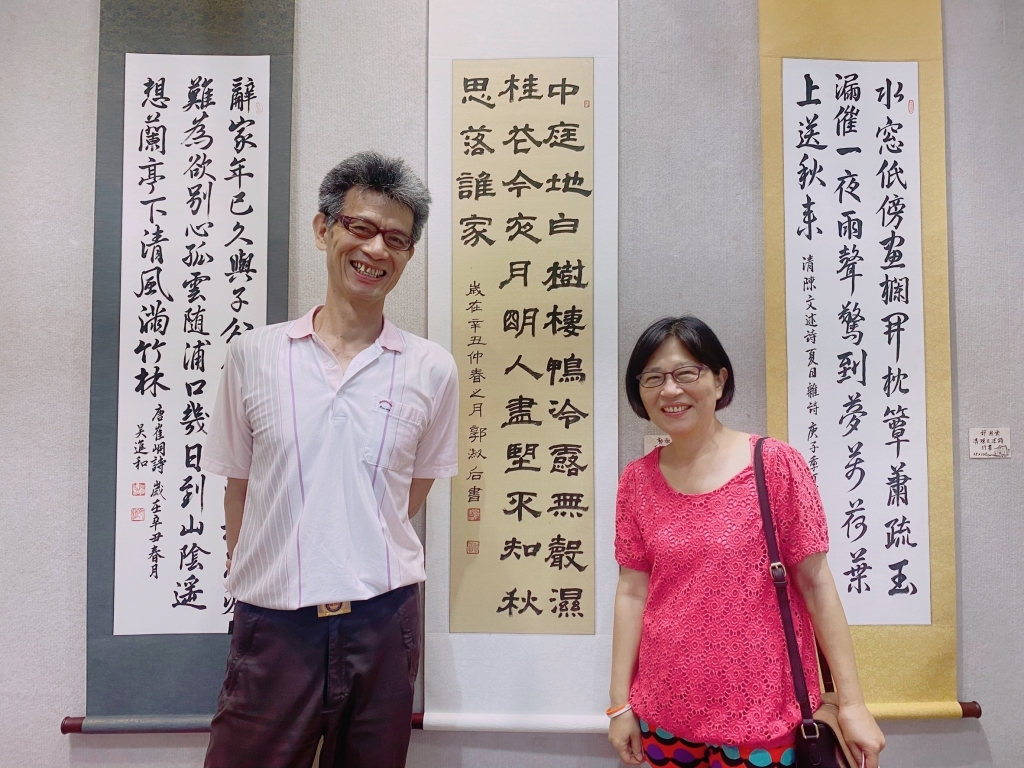 水窗低傍画欄開枕簟蕭疏玉
漏催一夜雨聲驚到夢万荷葉
上送秋来
清陳文述詩夏日雜詩 庚子季
中庭地白樹棲鴉冷露無聲濕
桂花今夜月明人盡望不知秋
思落誰家
歲在辛丑仲春之月 郭淑后書
辭家年已久與子分
難為欲別心孤雲随浦口幾日到山陰遥
想蘭亭下清風滿竹林
唐崔峒詩 歲在辛丑春月
吳進和
清陳文述詩
行書